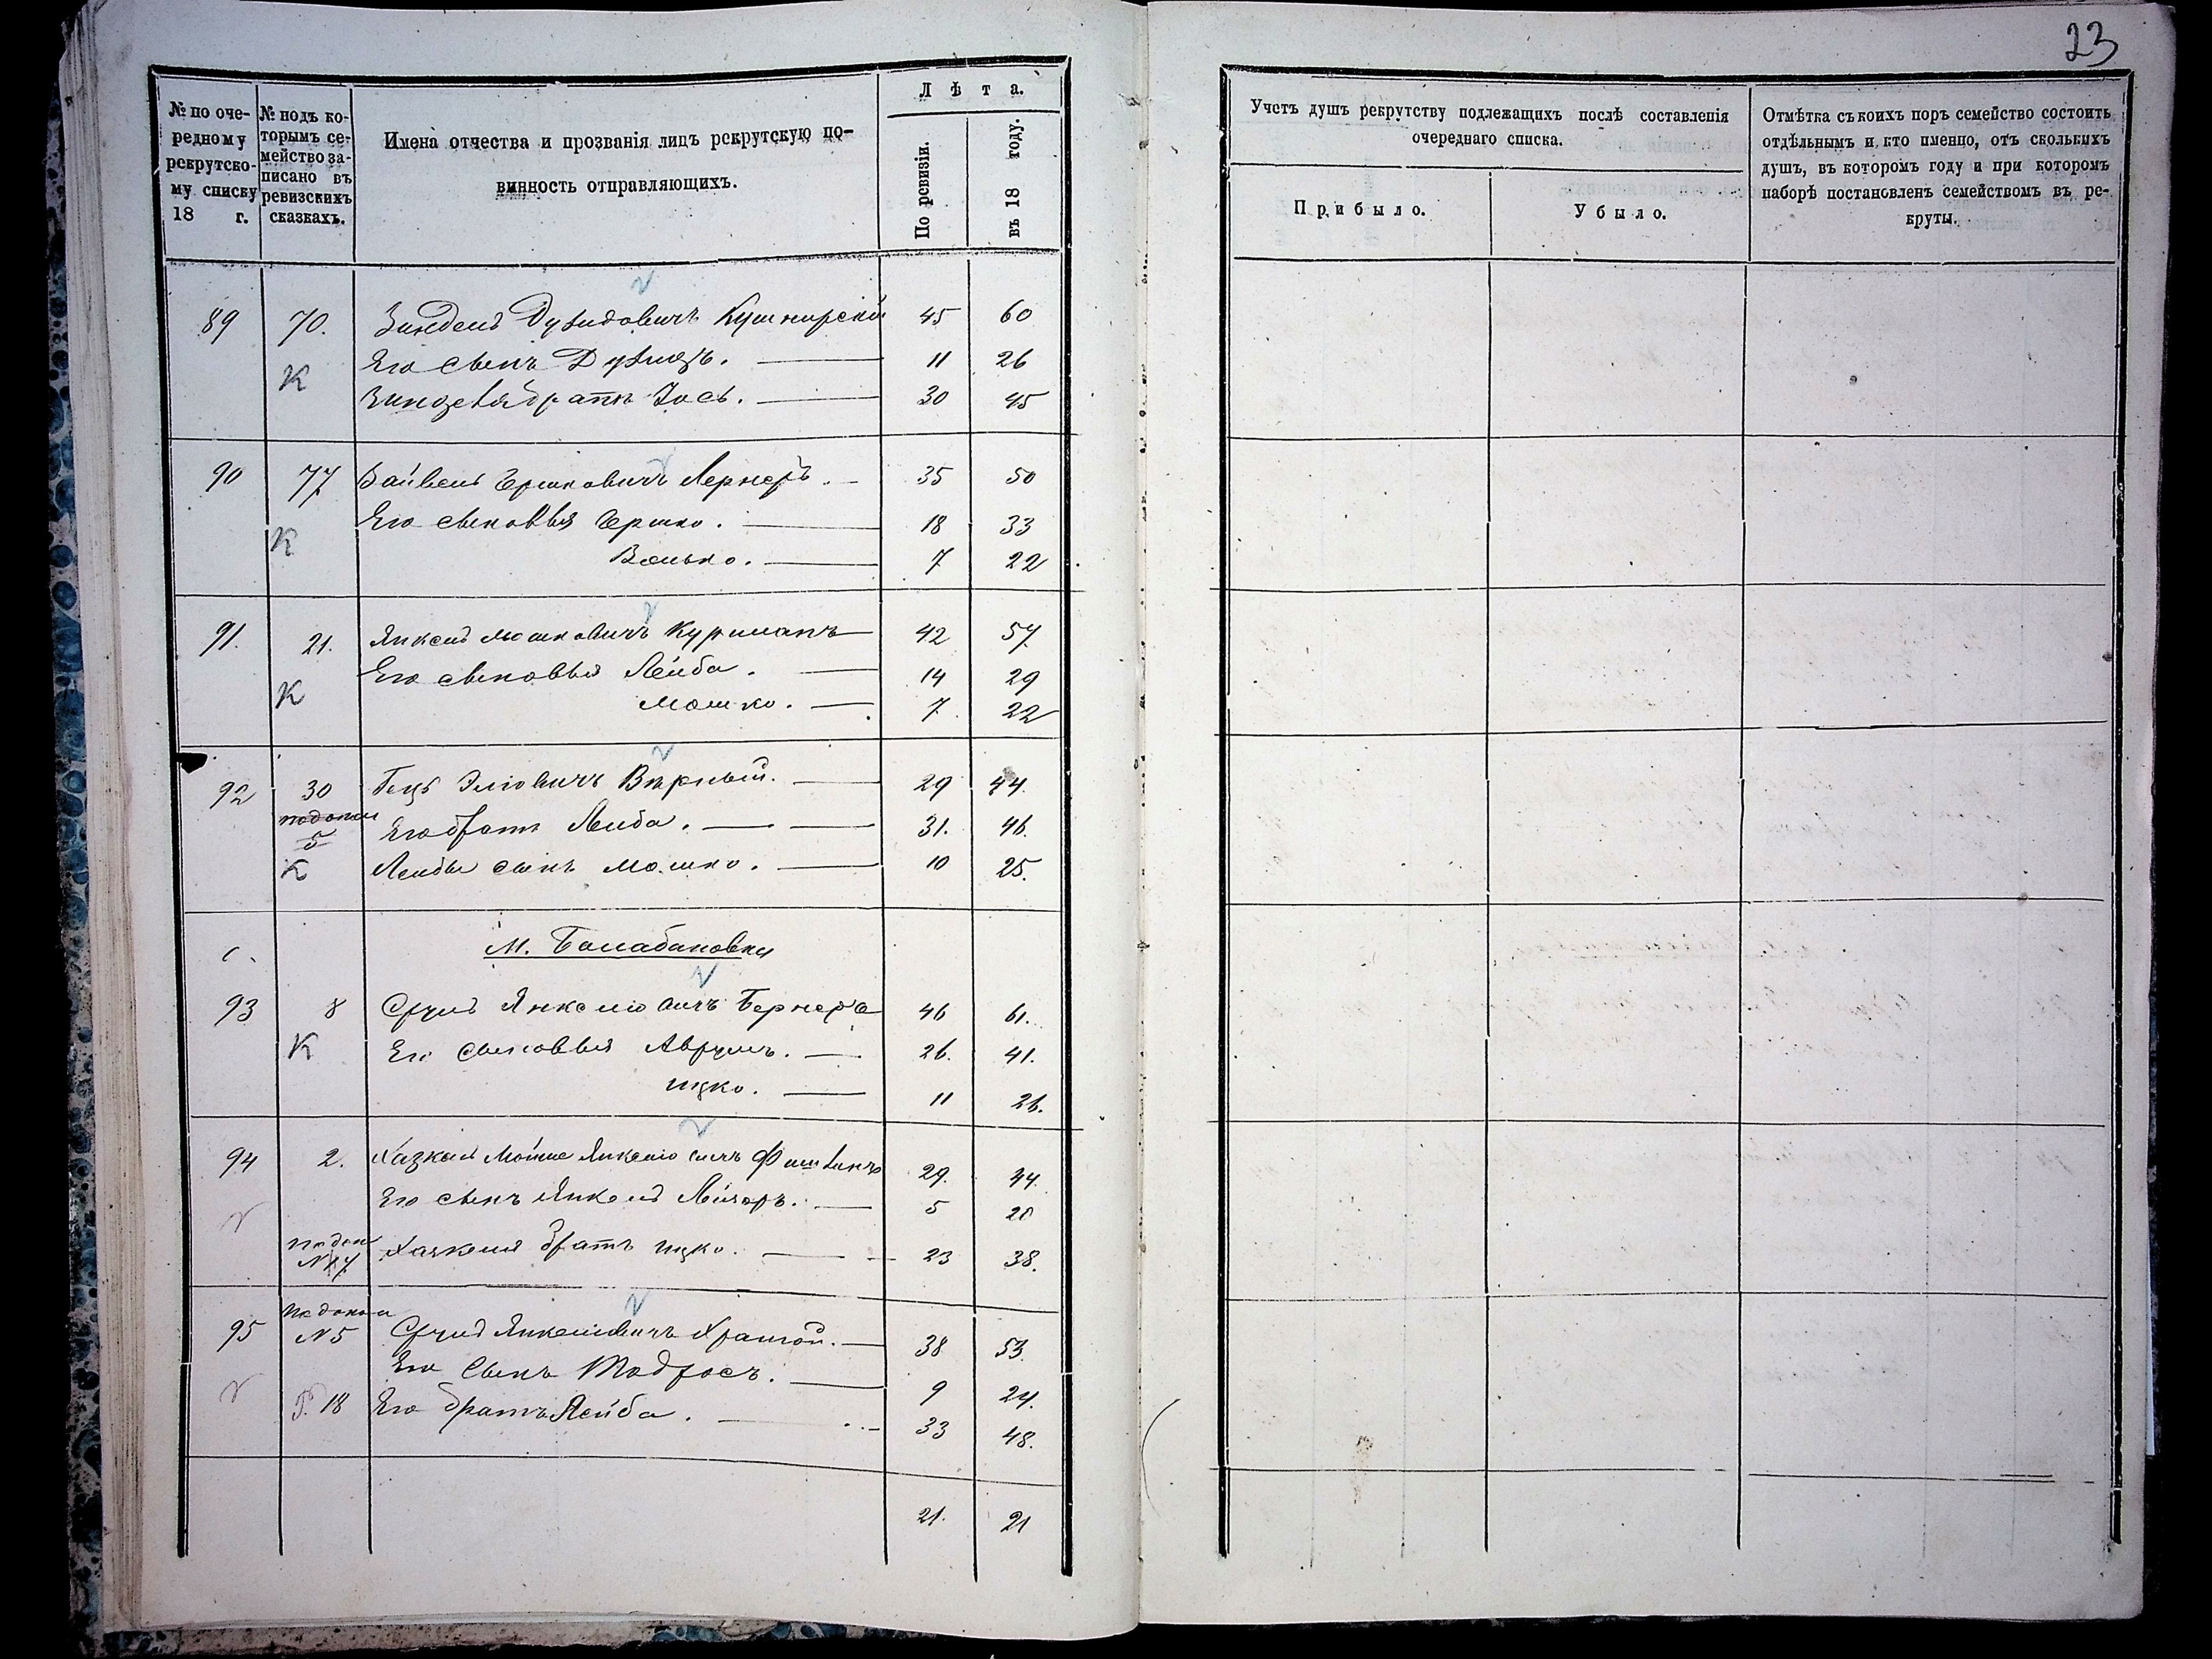 23
№ по оче-
редному
рекрутско-
му списку
18 г.
№ подъ ко-
торымъ се-
мейство за-
писано въ
ревизскихъ
сказкахъ.
Имена отчества и прозванія лицъ рекрутскую по-
винность отправляющихъ.
Лѣта.
По ревизіи.
въ 18 году.
Учетъ душъ рекрутству подлежащихъ послѣ составленія
очереднаго списка.
Прибыло.
Убыло.
Отмѣтка съ коихъ поръ семейство состоитъ
отдѣльнымъ и кто именно, отъ сколькихъ
душъ, въ которомъ году и при которомъ
наборѣ постановленъ семействомъ въ ре-
круты.
89 70. Зиндель Дувидовичъ Кушнирскій 45 60
Его сынъ Дувидъ. 11 26
К
Зинделя братъ Іось. 30 45
90 77 Вайвель Гершковичъ Лернеръ. 35 50
Его сыновья Гершко. 18 33
К
Волько. 7 22
91. 21. Янкель Мошковичъ Курманъ 42 57
Его сыновья Лейба. 14 29
К
Мошко. 7 22
92 30 Вѣрный. 29 44.
5 Его братъ Лейба. 31. 46.
К Лейбы сынъ Мошко. 10 25.
М. Балабановки
93 8 Сруль Янкелевичъ Бернеръ 46 61.
К Его сыновья Аврумъ. 26. 41.
Ицко. 11 26.
94 2. Мойше Янкелевичъ 29. 44.
Его сынъ Янкель Лейзоръ. 5 20
№ 7 братъ Ицко. 23 38.
95 № 5 Сруль Янкелевичъ 38 53.
Его сынъ Тодросъ. 9 24.
18 Его братъ Лейба. 33 48.
21. 21